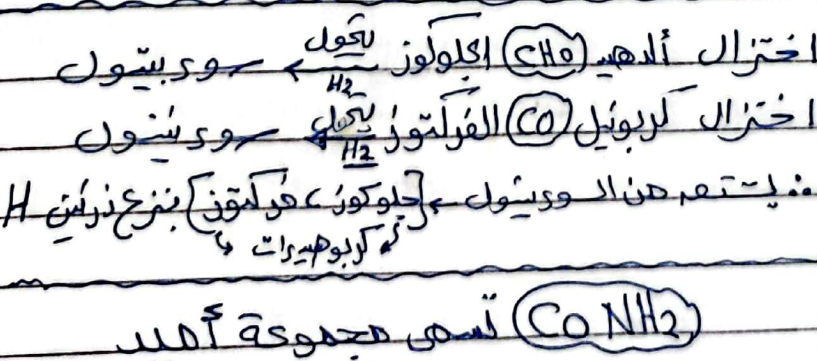 اختزال ألدهيد (CHO) الجلوكوز يتحول H2 ← سوربيتول
اختزال كربونيل (CO) الفركتوز يتحول H2 ← سوربيتول
∴ يشتق من السوربيتول ← [جلوكوز، فركتوز] بنزع ذرتين H
كربوهيدرات
(CONH2) تسمى مجموعة أميد